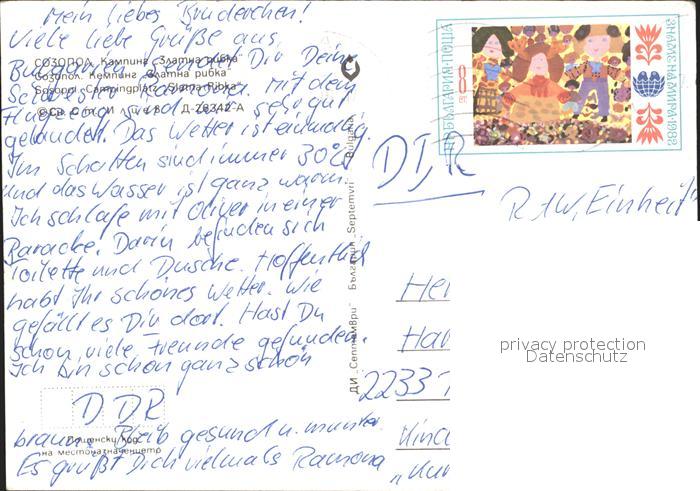 Mein liebes Brüderchen!
Viele liebe Grüße aus
Bulgarien sendet Dir Dein
Schwesterlein Ramona. Mit dem
Flugzeug sind wir sehr gut
gelandet. Das Wetter ist einmalig.
Im Schatten sind immer 30°C
und das Wasser ist ganz warm.
Ich schlafe mit Oliver in einer
Baracke. Darin befinden sich
Toilette und Dusche. Hoffentlich
habt Ihr schönes Wetter. Wie
gefällt es Dir dort. Hast Du
schon viele Freunde gefunden.
Ich bin schon ganz schön
braun. Bleib gesund u. munter.
Es grüßt Dich vielmals Ramona
СОЗОПОЛ. Кампинг „Златна рибка"
Созопол. Кемпинг „Златна рибка"
Sosopol. Campingplatz „Slatna Ribka"
Д-26342-А
DDR
Пощенски код
на местоназначението
ДИ „Септември" България „Septemvri" Bulgaria
НР БЪЛГАРИЯ·ПОЩА
8
ЗНАМЕ НА МИРА·1982
DDR
RAW, Einheit
He
Har
2233
Kinc
privacy protection
Datenschutz